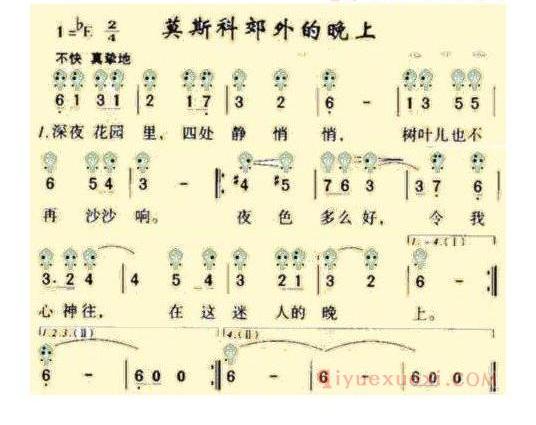 莫斯科郊外的晚上
1=♭E 2/4
不快 真挚地
6 1 3 1 | 2 1 7 | 3 2 | 6 - | 1 3 5 5 |
1.深夜 花园 里, 四处 静 悄 悄, 树叶 儿也不
6 5 4 | 3 - :| #4 #5 | 7 6 3 | 3 7 6 |
再 沙沙 响。 夜 色 多么 好, 令 我
1.-4.(Ⅰ)
3· 2 4 | 4 5 4 | 3 2 1 | 3 2 | 6 - :|
心 神 往, 在 这 迷 人的 晚 上。
1.2.3.(Ⅱ) 4.(Ⅱ)
6 - | 6 0 0 :| 6 - | 6 - | 6 0 0 ‖
iyuexuexi.COM